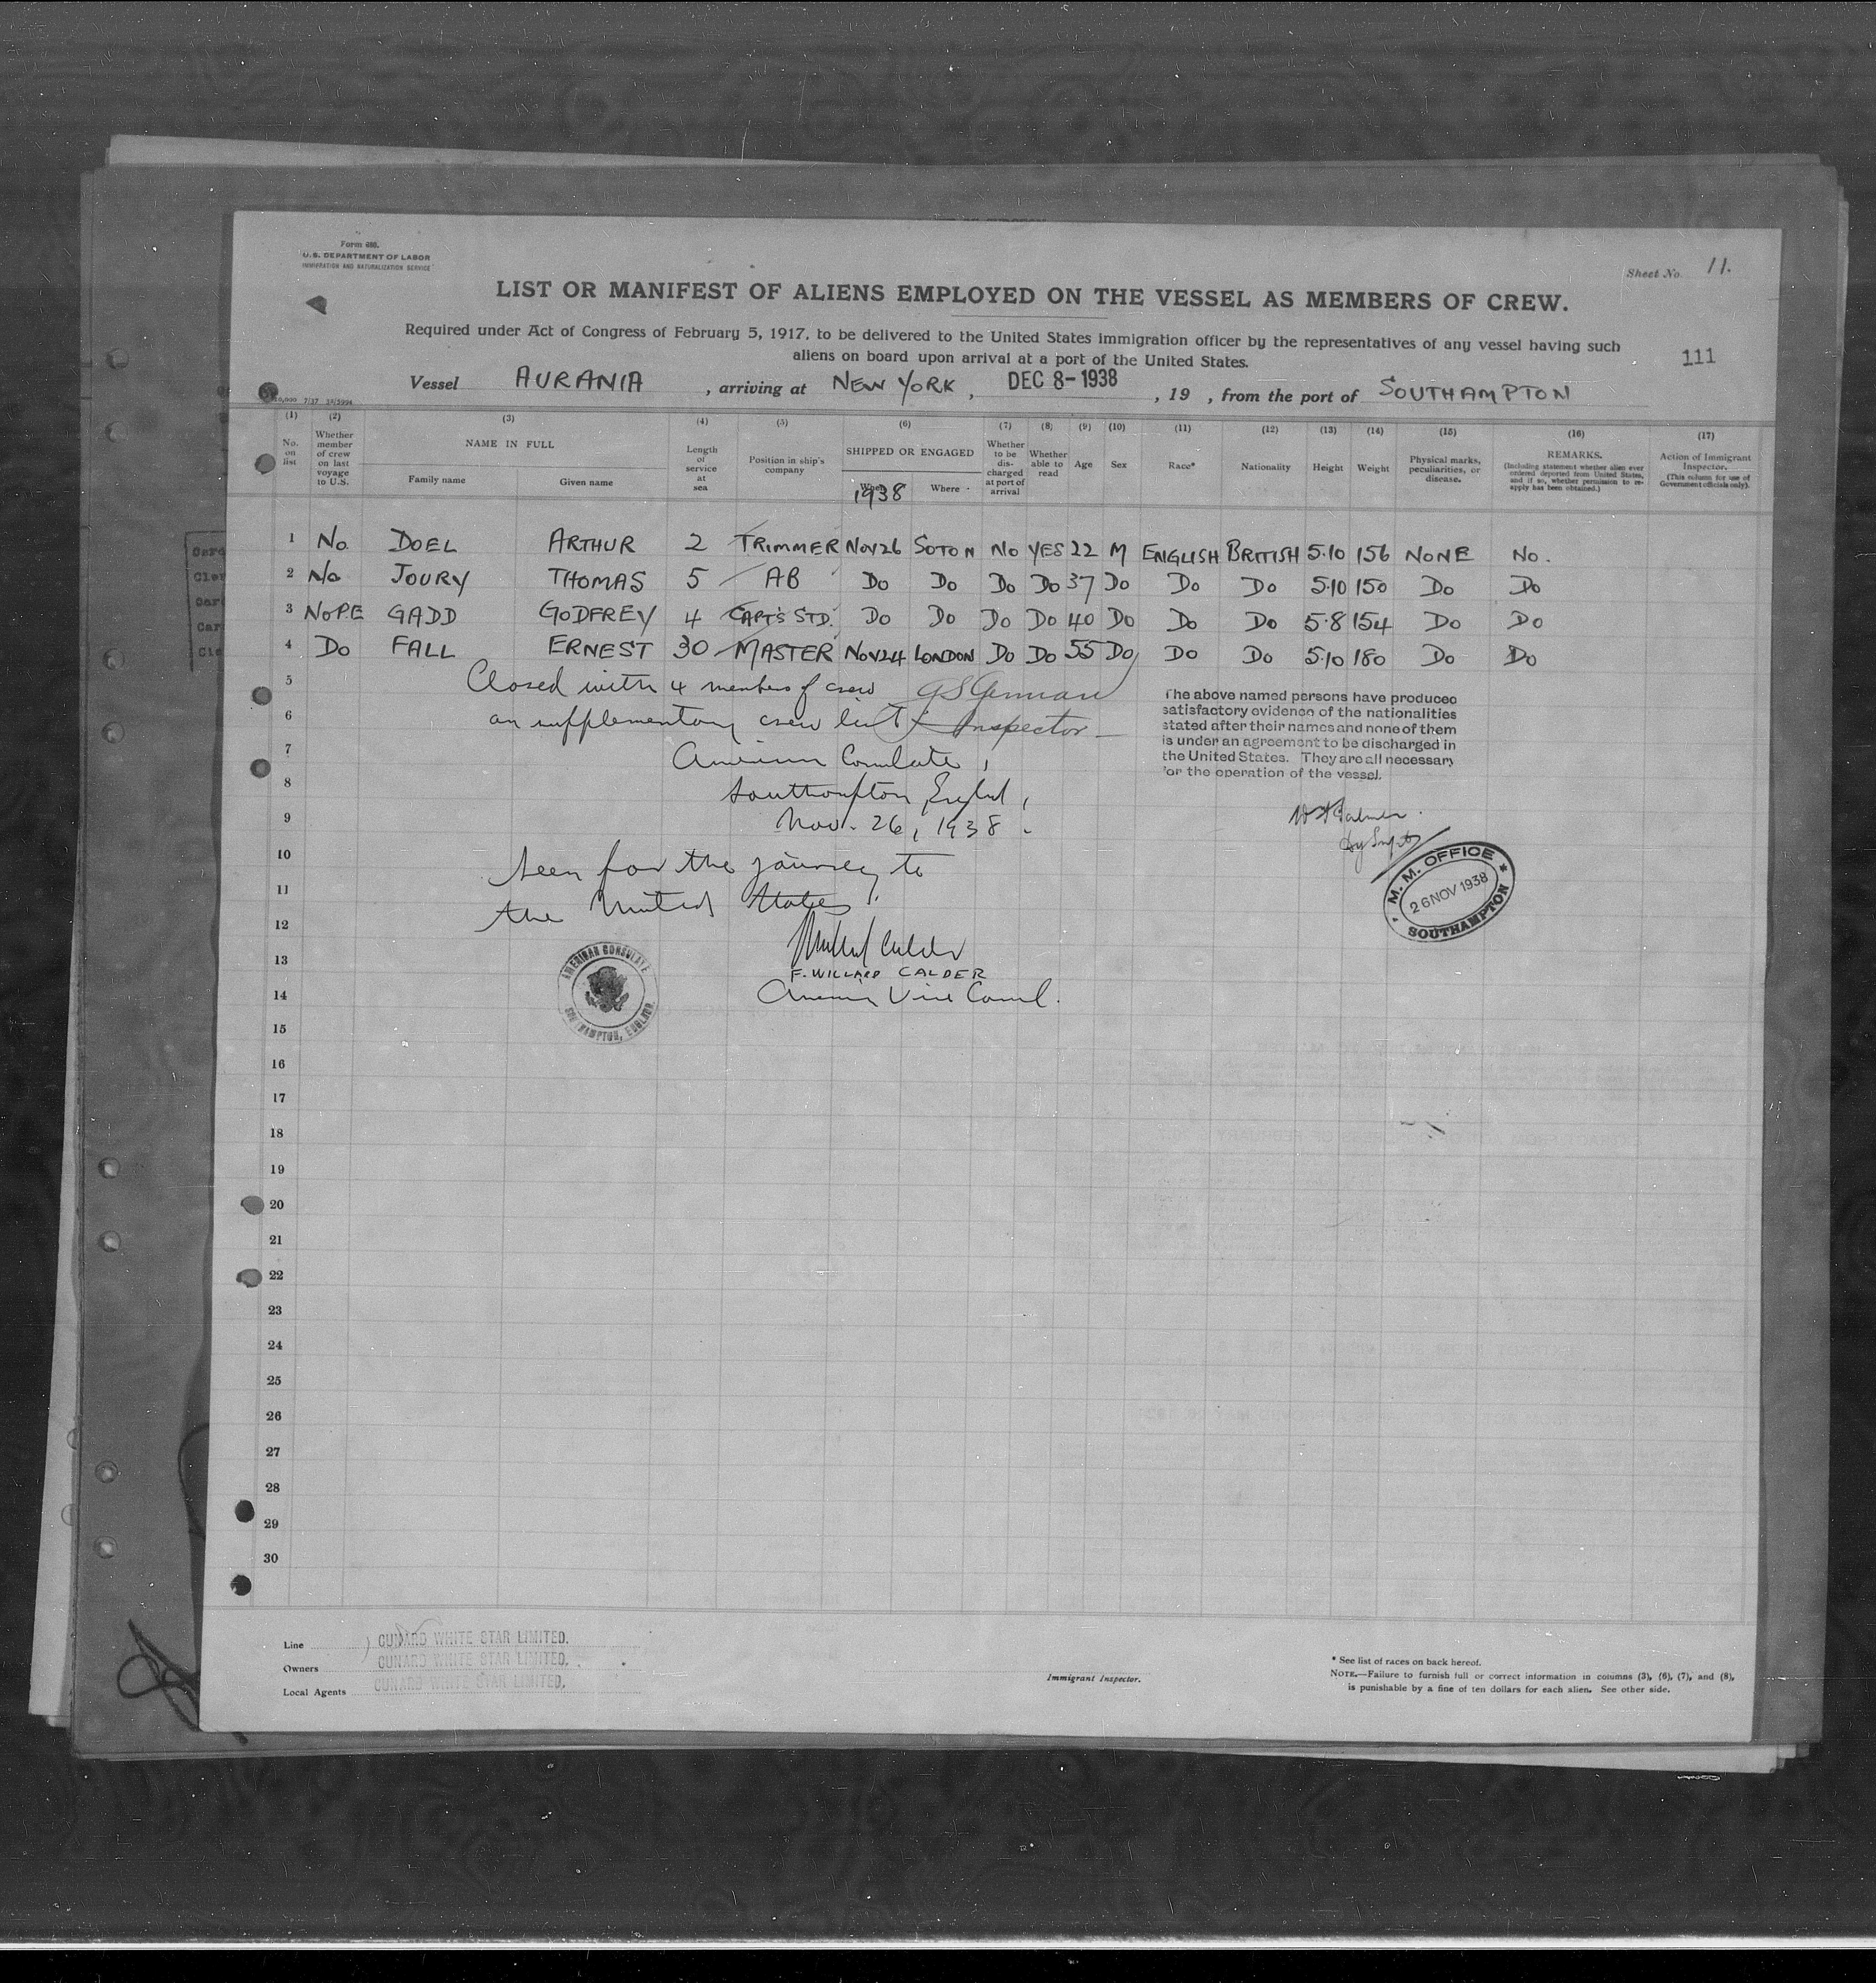 Form 680.
U.S. DEPARTMENT OF LABOR
IMMIGRATION AND NATURALIZATION SERVICE
Sheet No. 11.
LIST OR MANIFEST OF ALIENS EMPLOYED ON THE VESSEL AS MEMBERS OF CREW.
Required under Act of Congress of February 5, 1917, to be delivered to the United States immigration officer by the representatives of any vessel having such
aliens on board upon arrival at a port of the United States.
111
Vessel AURANIA, arriving at NEW YORK, DEC 8-1938, 19 , from the port of SOUTHAMPTON
(1) (2) (3) (4) (5) (6) (7) (8) (9) (10) (11) (12) (13) (14) (15) (16) (17)
No. on list
Whether member of crew on last voyage to U.S.
NAME IN FULL
Family name
Given name
Length of service at sea
Position in ship's company
SHIPPED OR ENGAGED
When 1938
Where
Whether to be discharged at port of arrival
Whether able to read
Age
Sex
Race*
Nationality
Height
Weight
Physical marks, peculiarities, or disease.
REMARKS.
(Including statement whether alien ever ordered deported from United States, and if so, whether permission to reapply has been obtained.)
Action of Immigrant Inspector.
(This column for use of Government officials only).
1 No. DOEL ARTHUR 2 TRIMMER NOV 26 SOTON NO YES 22 M ENGLISH BRITISH 5.10 156 NONE NO.
2 No JOURY THOMAS 5 AB DO DO DO DO 37 DO DO DO 5.10 150 DO DO
3 NoP.E GADD GODFREY 4 CAPT'S STD. DO DO DO DO 40 DO DO DO 5.8 154 DO DO
4 DO FALL ERNEST 30 MASTER NOV 24 LONDON DO DO 55 DO DO DO 5.10 180 DO DO
5 Closed with 4 members of crew
6 on supplementary crew list Inspector
7 American Consulate,
8 Southampton, England,
9 Nov. 26, 1938.
10 Seen for the journey to
11 the United States.
12
13 F. WILLARD CALDER
14 American Vice Consul.
15
16
17
18
19
20
21
22
23
24
25
26
27
28
29
30
The above named persons have produced
satisfactory evidence of the nationalities
stated after their names and none of them
is under an agreement to be discharged in
the United States. They are all necessary
for the operation of the vessel.
M. M. OFFICE
26 NOV 1938
SOUTHAMPTON
AMERICAN CONSULATE
SOUTHAMPTON, ENGLAND.
Line CUNARD WHITE STAR LIMITED.
Owners CUNARD WHITE STAR LIMITED.
Local Agents CUNARD WHITE STAR LIMITED.
Immigrant Inspector.
* See list of races on back hereof.
NOTE.—Failure to furnish full or correct information in columns (3), (6), (7), and (8),
is punishable by a fine of ten dollars for each alien. See other side.